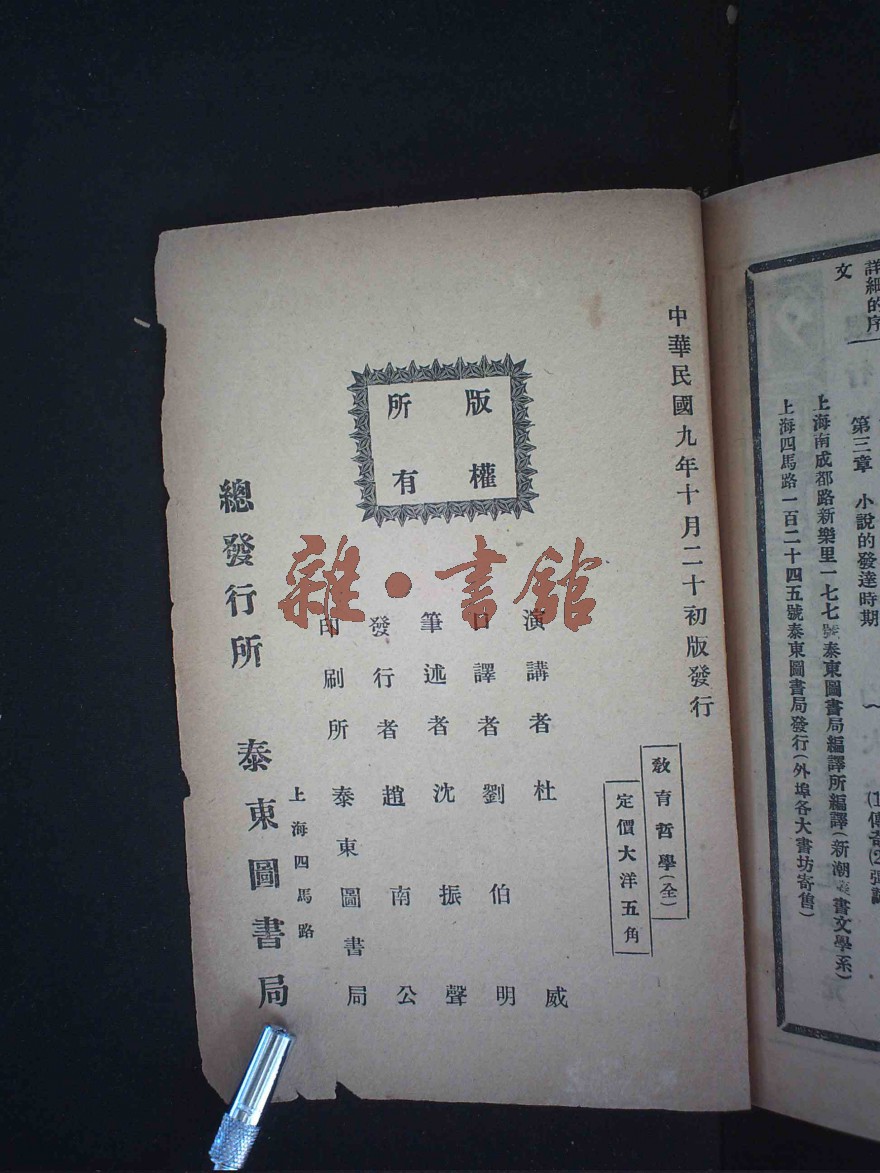 中華民國九年十月二十初版發行
教育哲學(全)
定價大洋五角
版權所有
演講者 杜威
口譯者 劉伯明
筆述者 沈振聲
發行者 趙南公
印刷所 泰東圖書局
上海四馬路
總發行所 泰東圖書局
雜·書館
詳細的序文
第三章 小說的發達時期
上海南成都路新樂里一七七號泰東圖書局編譯所編譯(新潮叢書文學系)
上海四馬路一百二十四五號泰東圖書局發行(外埠各大書坊寄售)